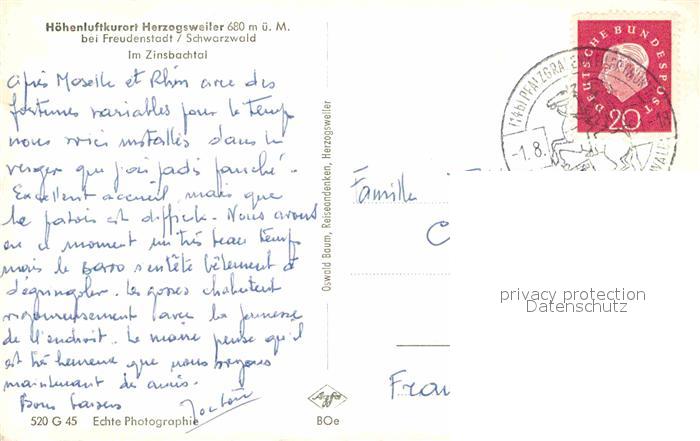 Höhenluftkurort Herzogsweiler 680 m ü. M.
bei Freudenstadt / Schwarzwald
Im Zinsbachtal
après Moselle et Rhin avec des
fortunes variables pour le temps
nous voici installés dans le
verger que j'ai jadis fauché.
Excellent accueil mais que
le patois est difficile. Nous avons
en ce moment un très beau temps
mais le Baro s'entête bêtement à
dégringoler. Les gosses chahutent
vigoureusement avec la jeunesse
de l'endroit. Le maire pense qu'il
est très heureux que nous soyons
maintenant des amis.
Bons baisers
520 G 45 Echte Photographie
Oswald Baum, Reiseandenken, Herzogsweiler
Agfa
BOe
DEUTSCHE BUNDESPOST
20
(14b) PFALZGRAFENWEILER
-1.8.
Famille
C
Fran
privacy protection
Datenschutz